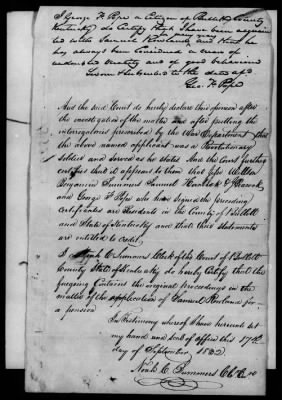 I George F Pope a Citizen of Bullitt County
Kentucky do Certify that I have been acquain
ted with Samuel Rowland and that he
has always been Considered a man of
undoubted veracity and of good behaviour
Sworn & Subscribed to the date afd
Geo. F. Pope
And the said Court do hereby declare this opinion after
the investigation of the matter and after putting the
interrogatories prescribed by the War Department that
the above named applicant was a Revolutionary
Soldier and served as he states And the Court further
certifies that it appears to them that
Benjamin Summers Samuel
and George F Pope who have signed the preceding
certificates are Residents in the County of Bullitt
and State of Kentucky and that their statements
are entitled to credit
I Noah C Summers Clerk of the Court of Bullitt
County State of Kentucky do hereby Certify that the
foregoing Contains the original proceedings in the
matter of the application of Samuel Rowland for
a pension
In Testimony whereof I have hereunto set
my hand and seal of office this 17th
day of September 1832
Noah C Summers Clk